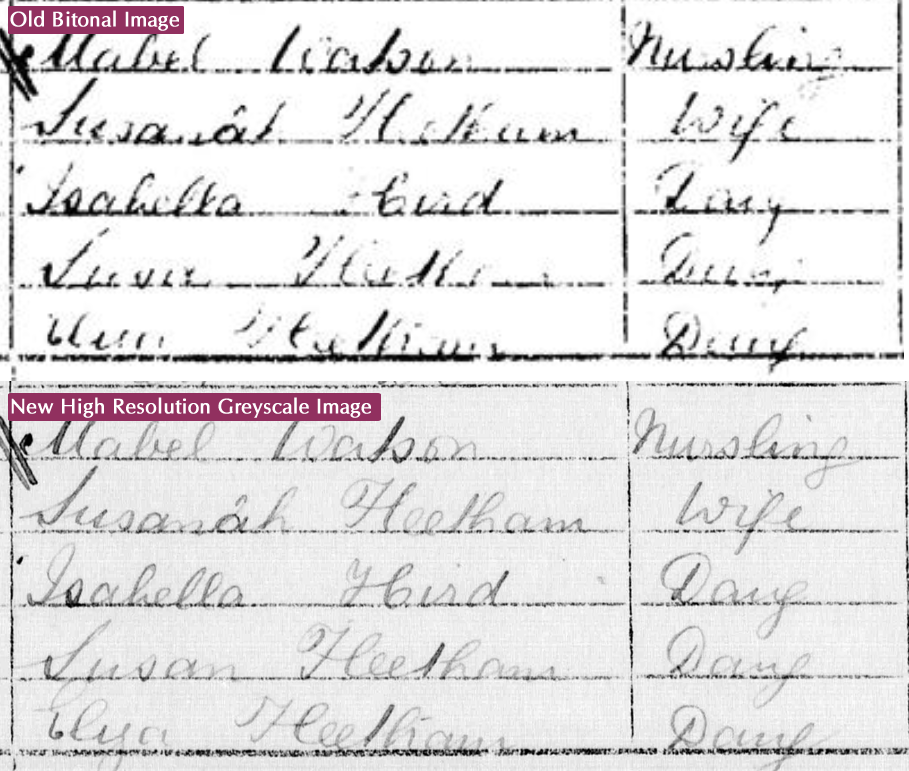 Old Bitonal Image
Mabel Watson Nursling
Susanah Heetham Wife
Isabella Hird Daug
Susan Heetham Daug
Heetham Daug
New High Resolution Greyscale Image
Mabel Watson Nursling
Susanah Heetham Wife
Isabella Hird Daug
Susan Heetham Daug
Heetham Daug